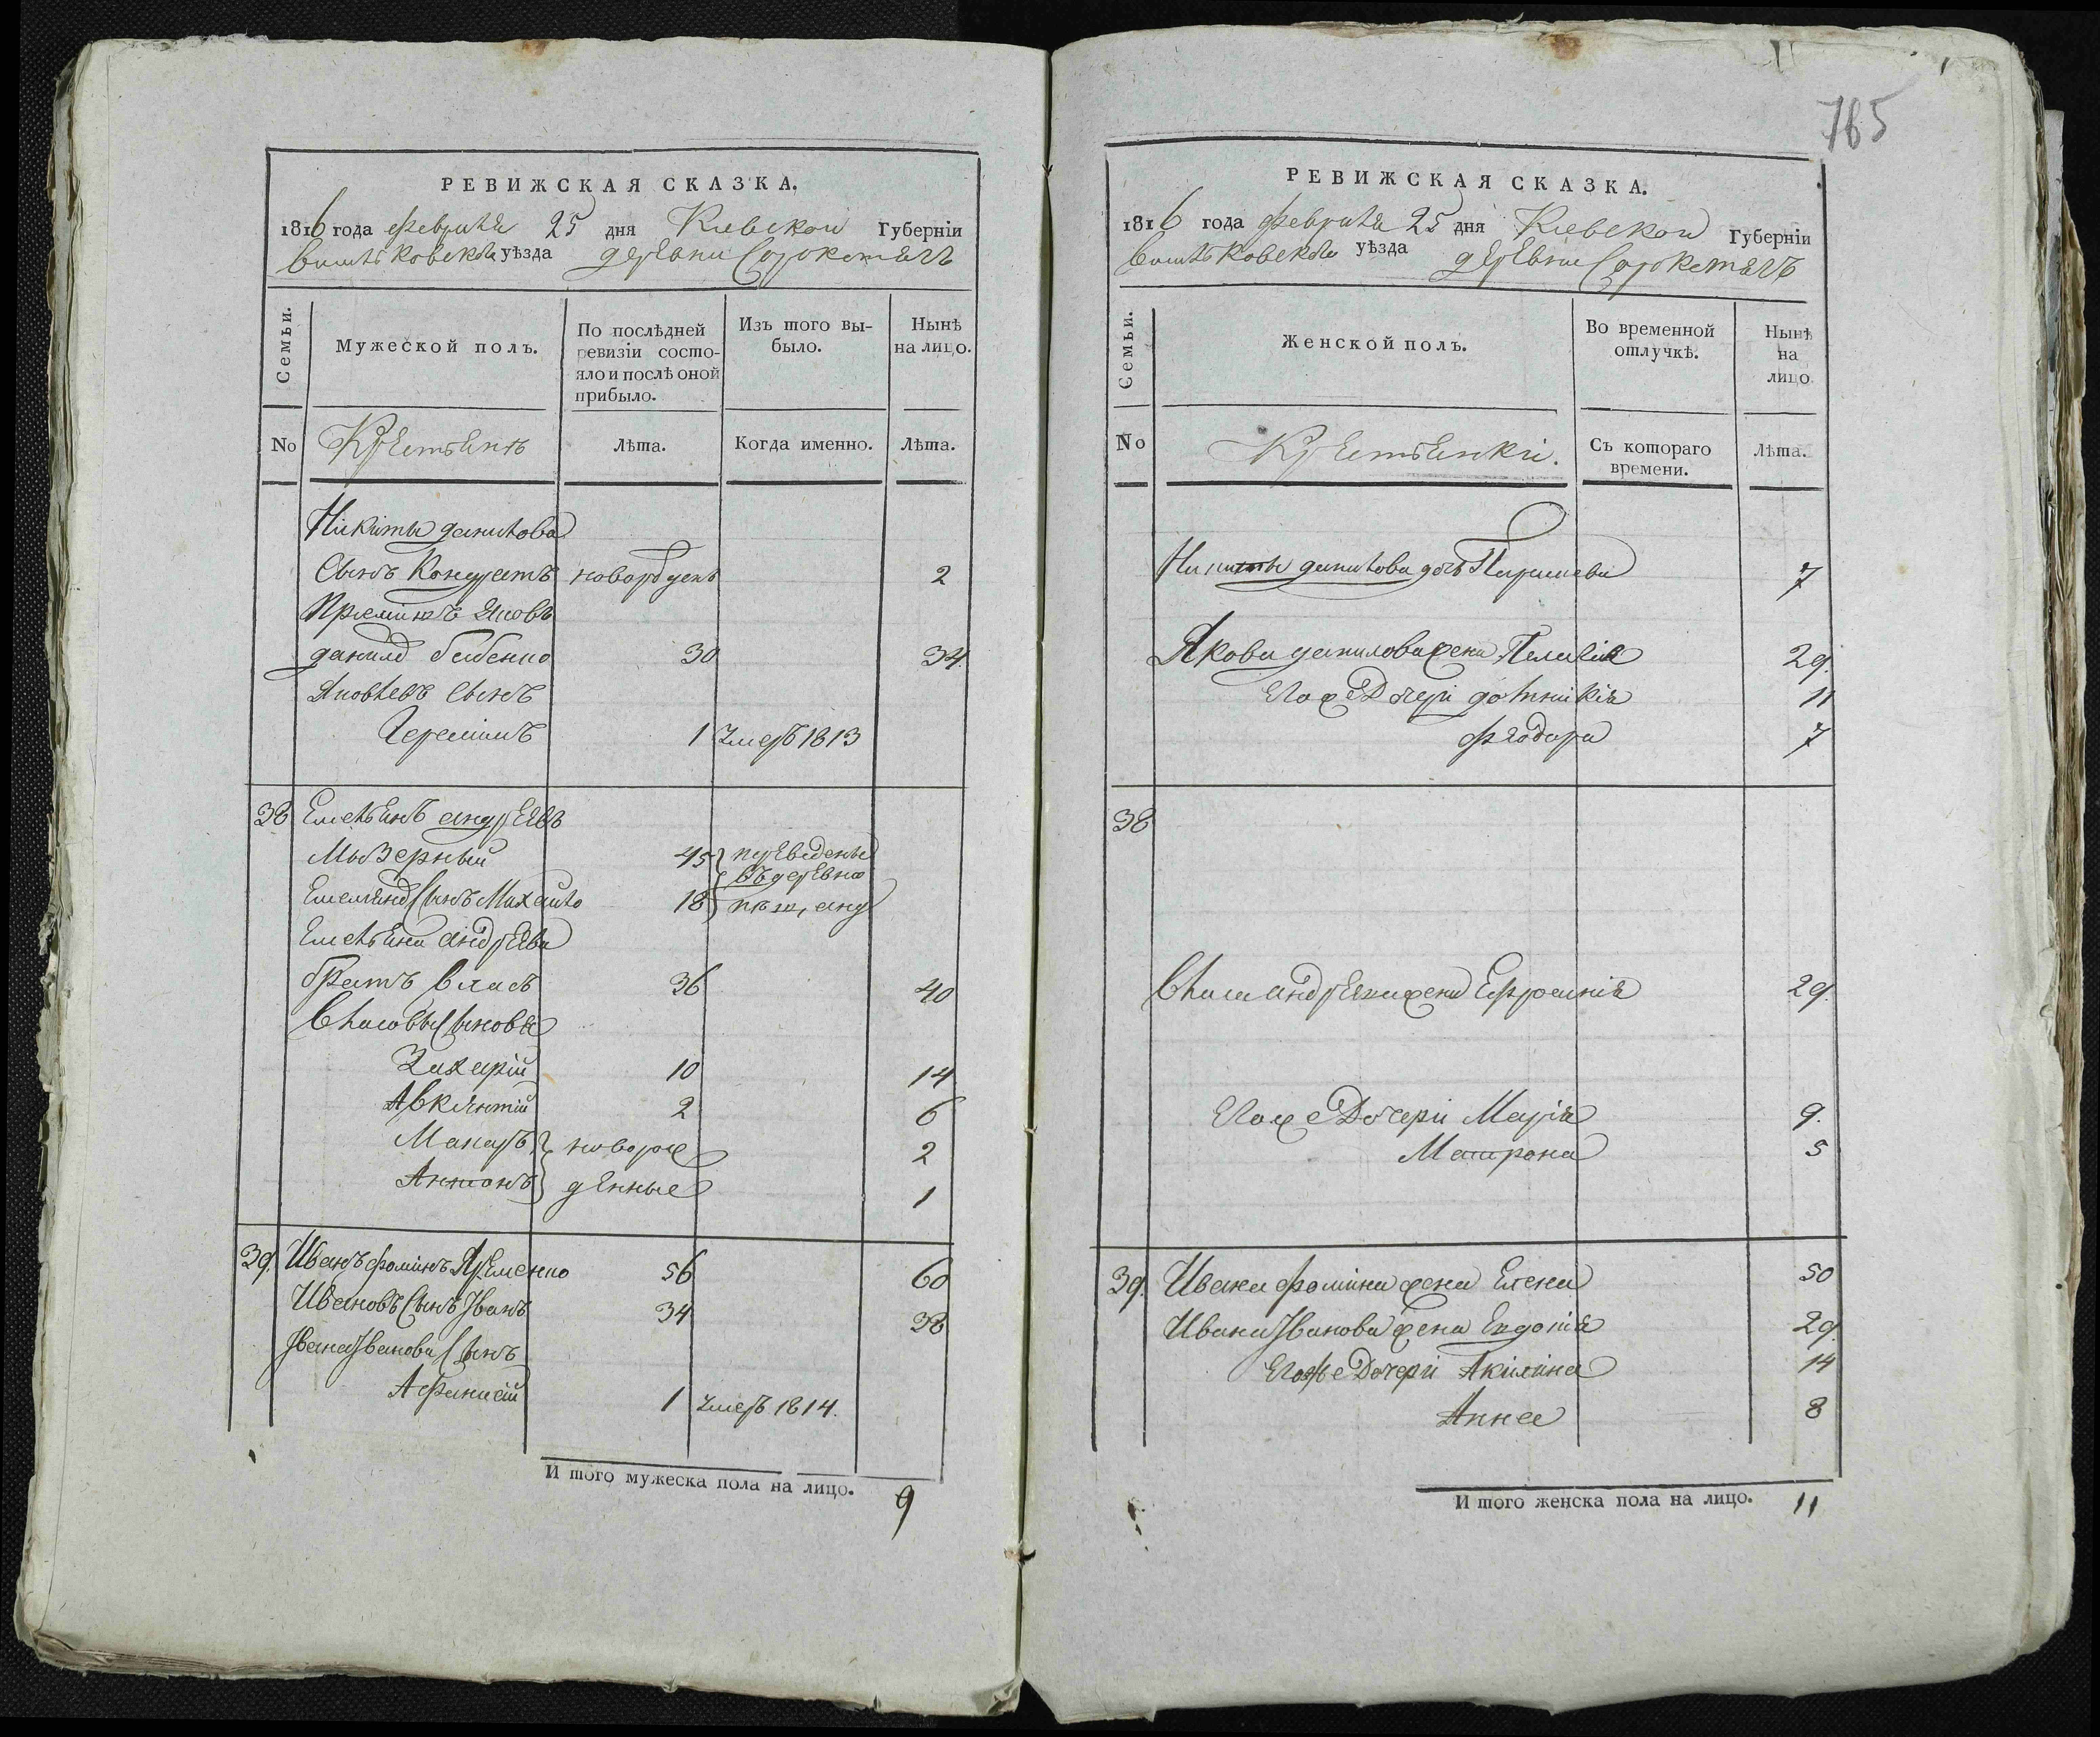 РЕВИЖСКАЯ СКАЗКА.
1816 года февраля 25 дня Киевской Губерніи
уѣзда деревни Сорокотягъ
Семьи.
Мужеской полъ.
По послѣдней ревизіи состо-
яло и послѣ оной
прибыло.
Изъ того вы-
было.
Нынѣ
на лицо.
No
Крестьянѣ
Лѣта.
Когда именно.
Лѣта.
Никиты данилова
Сынъ Кондратъ новорожденъ 2
Яковъ
данилов 30 34.
Яковлевъ Сынъ
Герасимъ 1 Умеръ 1813
38 Емельянъ андреевъ
Мызерный 45 переведены
въ деревню
Емельянов Сынъ Михайло 18
Емельяна андреева
братъ Власъ 36 40
Власовы Сыновья
Захарій 10 14
Авксентій 2 6
Макаръ новорож 2
Антонъ денные 1
39. Иванъ фоминъ Яременко 56 60
Ивановъ Сынъ Іванъ 34 38
Івана Іванова Сынъ
Афанасій 1 Умеръ 1814.
И того мужеска пола на лицо. 9
765
РЕВИЖСКАЯ СКАЗКА.
1816 года февраля 25 дня Киевской Губерніи
уѣзда деревни Сорокотягъ
Семьи.
Женской полъ.
Во временной
отлучкѣ.
Нынѣ
на
лицо.
No
Крестьянки.
Съ котораго
времени.
Лѣта.
Никиты данилова дочь 7
Якова данилова жена Пелагія 29.
Его же Дочери 11
Феодора 7
38
Власа андреева жена Ефросинія 29.
Его же Дочери Марія 9.
Матрона 5
39. Ивана фомина жена Елена 50
Ивана Іванова жена Евдокія 29.
Его же Дочери Акилина 14
Анна 8
И того женска пола на лицо. 11